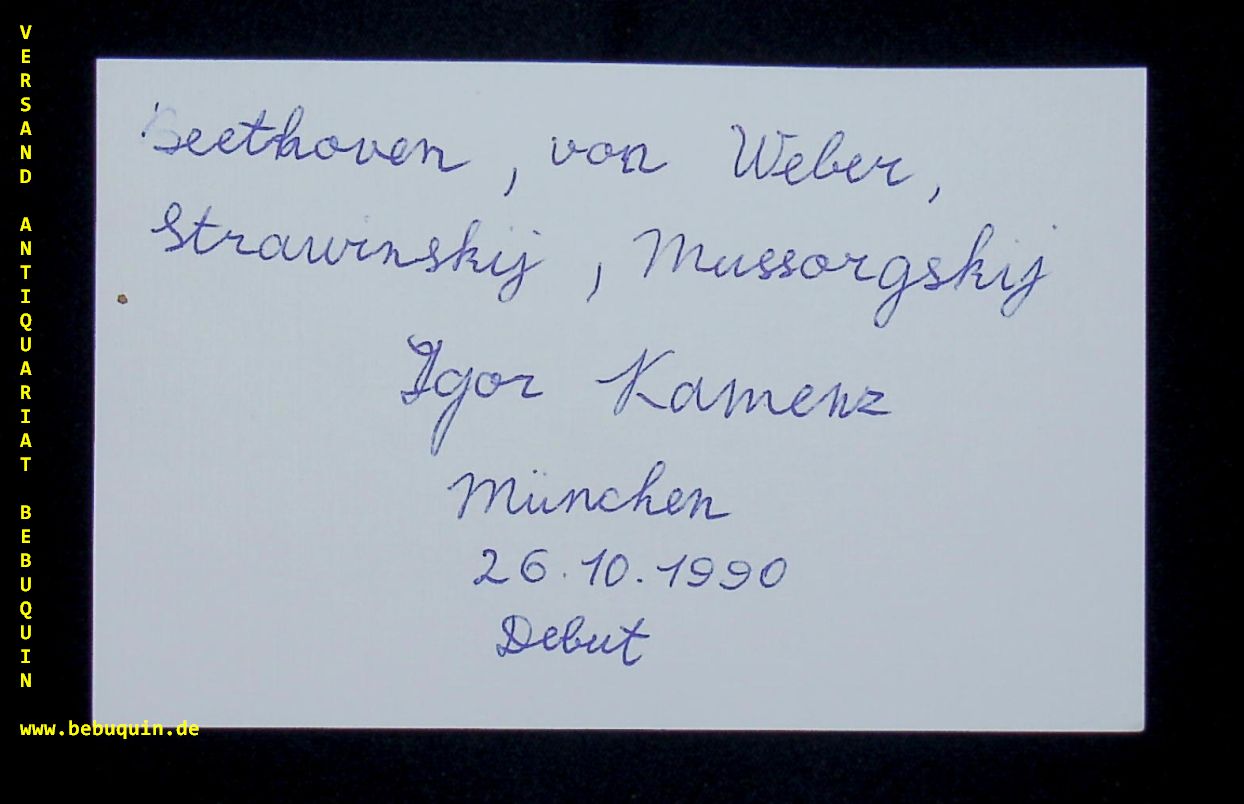 VERSAND ANTIQUARIAT BEBUQUIN
www.bebuquin.de
Beethoven, von Weber,
Strawinskij, Mussorgskij
Igor Kamenz
München
26.10.1990
Debut